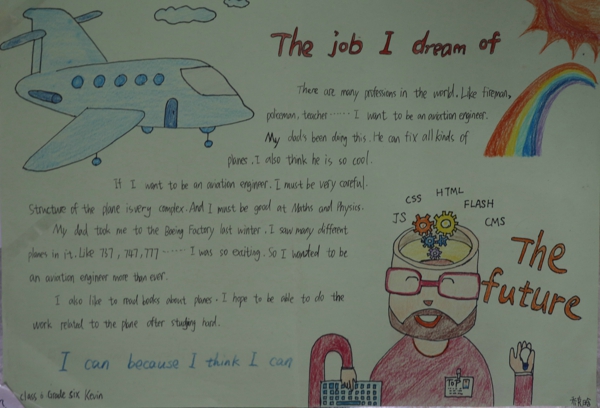 The job I dream of
There are many professions in the world. Like fireman,
policeman, teacher ...... I want to be an aviation engineer.
My dad's been doing this. He can fix all kinds of
planes. I also think he is so cool.
If I want to be an aviation engineer. I must be very careful.
Structure of the plane is very complex. And I must be good at Maths and Physics.
My dad took me to the Boeing Factory last winter. I saw many different
planes in it. Like 737, 747, 777 ...... I was so exciting. So I wanted to be
an aviation engineer more than ever.
I also like to read books about planes. I hope to be able to do the
work related to the plane after studying hard.
I can because I think I can
Class 4 Grade six Kevin
JS
CSS
HTML
FLASH
CMS
The
future